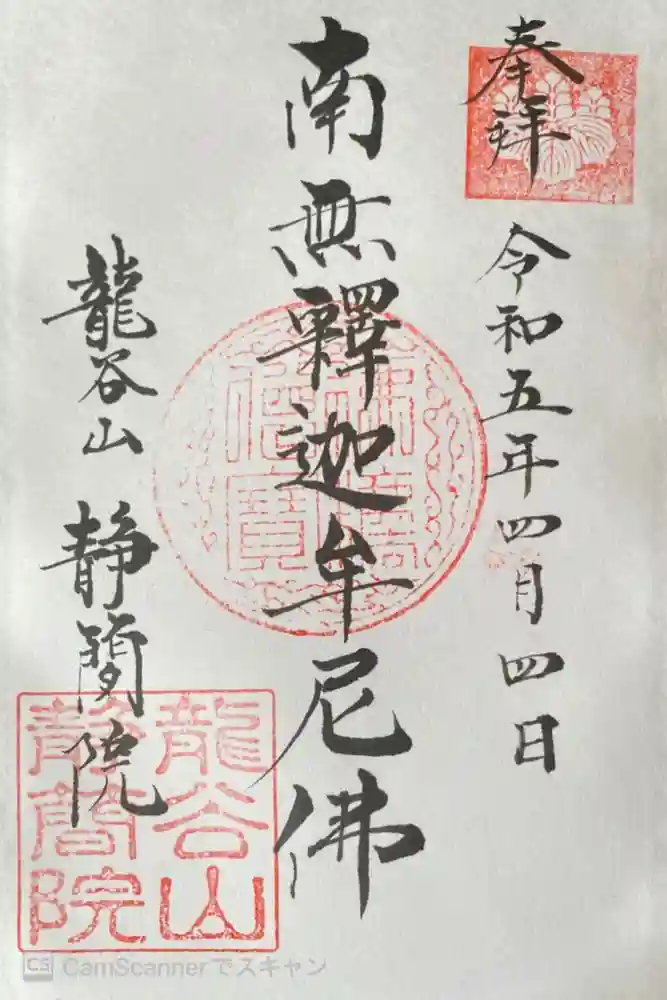 奉拝
令和五年四月四日
南無釋迦牟尼佛
龍谷山 静簡院
佛法僧寳
龍谷山
静簡院
CS CamScannerでスキャン